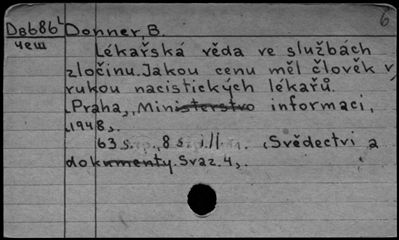 6
Dsb86L Donner, B.
чеш
Lékařská věda ve službách
zločinu. Jakou cenu měl člověk v
rukou nacistických lékařů.
Praha, Ministerstvo informací,
1948.
63 s., 8 s. ill. (Svědectví a
dokumenty. Svaz. 4).